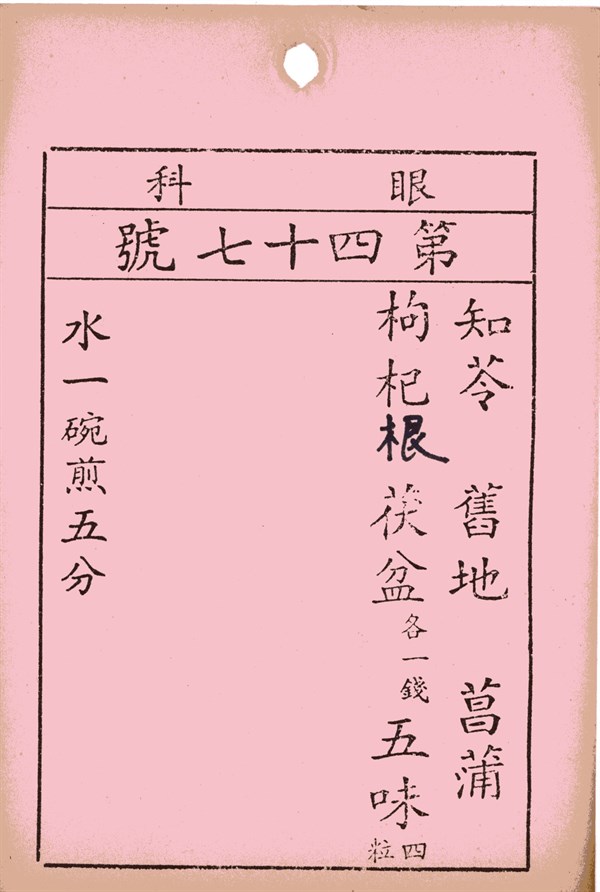 眼科
第四十七號
知苓 舊地 菖蒲
枸杞根 茯盆各一錢 五味四粒
水一碗煎五分